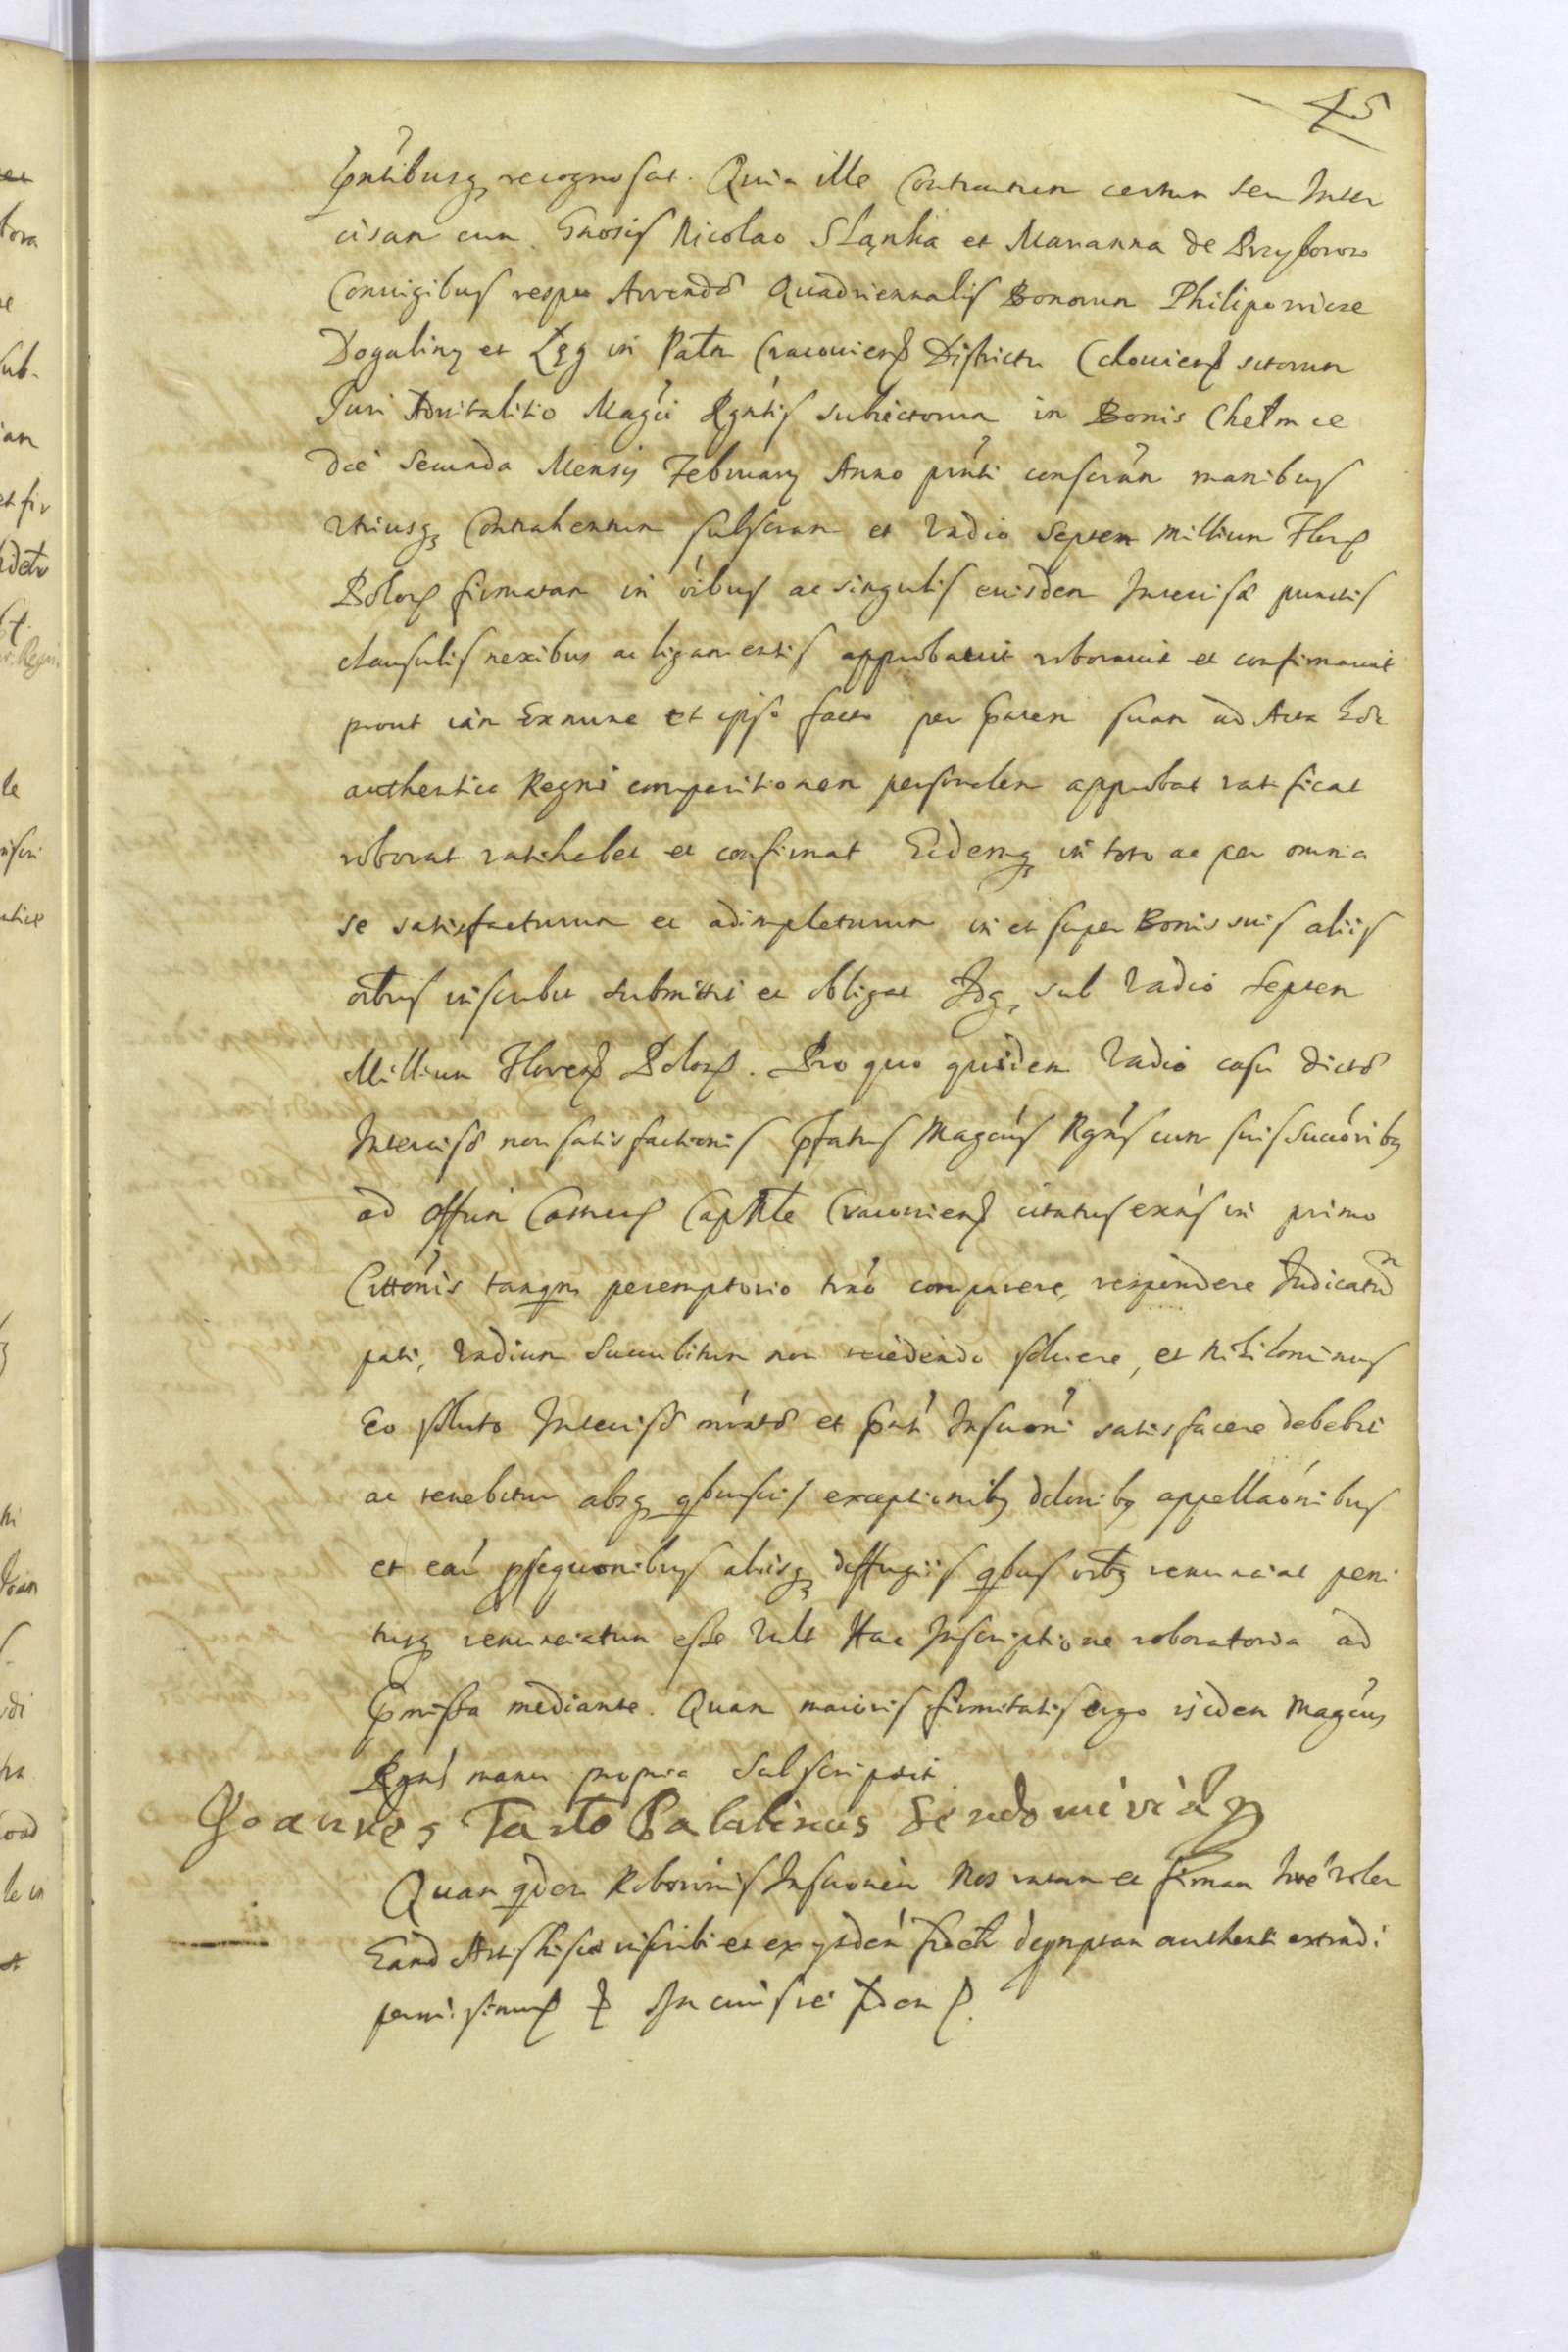 45
pntibusq recognoscat. Quia ille Contractum certum seu Inter
cisam cum Gnosis Nicolao Słąnka et Marianna de Przyborow
Coniugibus respu Arrendæ Quadriennalis Bonorum Philipowice
Dogaliny et Łęg in Patu Cracouien Districtu Czchouien sitorum
Juri Aduitalitio Magci Rgntis subiectorum in Bonis Chełmce
die Secunda Mensis February Anno pnti conscram manibus
vtriusq Contrahentium subscram et vadio septem millium Flor
Polon firmatam in oibus ac singulis eiusdem Intercisæ punctis
clausulis nexibus ac ligamentis approbauit roborauit et confirmauit
prout iam Exnunc et ipso facto per pntem suam ad Acta
authentica Regni comparitionem personalem approbat ratificat
roborat ratihabet et confirmat Eidemq in toto ac per omnia
se satisfacturum et adimpleturum in et super Bonis suis aliis
oibus inscribit submittit et obligat Idq sub vadio septem
Millium Floren Polon. Pro quo quidem vadio casu dictæ
Intercisæ non satisfactionis pfatus Magcus Rgns cum suis succoribq
ad Offim Castren Capitle Cracouien citatus exns in primo
Cittonis tanqm peremptorio tno comparere, respondere Iudicatum
pati, vadium succubitum non recedendo soluere, et nihilominus
Eo soluto Intercisæ mratæ et pnti Inscroni satisfacere debebit
ac tenebitur absq qbusuis exceptionibq dilonibq appellaonibus
et earu psequonibus aliisq diffugiis qbus oibq renunciat peni
tusq renunciatum esse vult Hac Inscriptione roboratoria ad
pmissa mediante. Quam maioris firmitatis ergo isdem Magcus
Rgns manu propria subscripsit
Joannes Tarło Palatinus Sendomiriẽ
Quam qdem Roborois Inscronem Nos ratam et firmam hre volen
Eand Actis hisce inscribi et ex ysdem authenti extradi
permisimus In cuius rei fidem